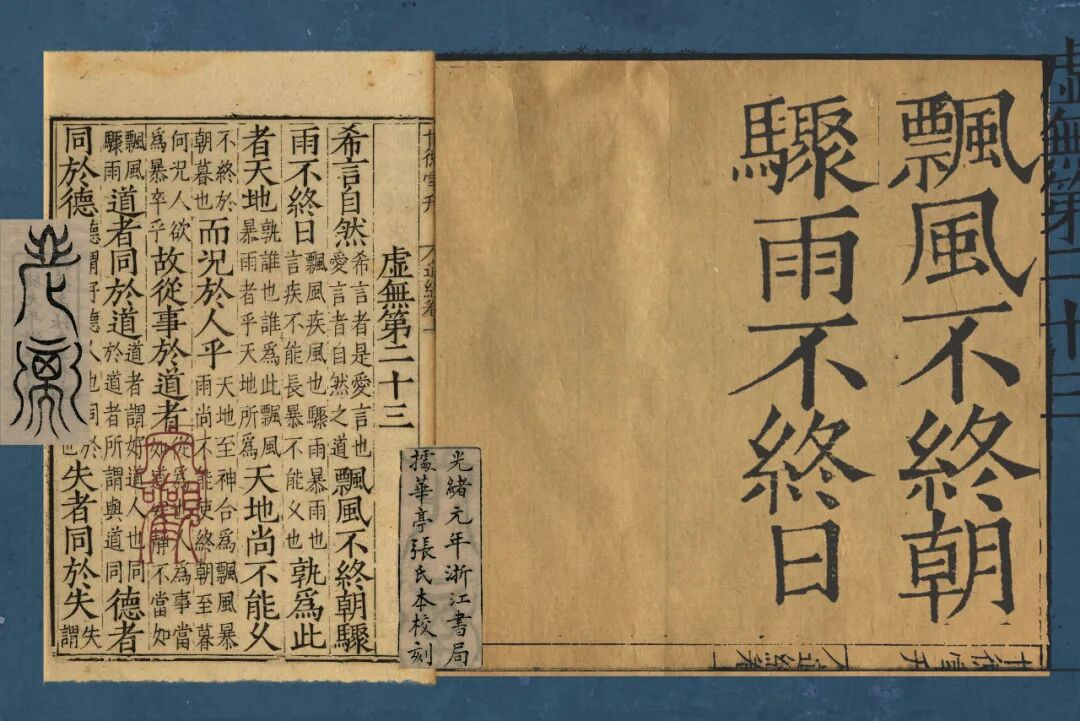 虛無第二十三
飄風不終朝
驟雨不終日
虛無第二十三
希言自然希言者是愛言也愛言者自然之道飄風不終朝驟
雨不終日飄風疾風也驟雨暴雨也言疾不能長暴不能乆也孰爲此
者天地孰誰也誰爲此飄風暴雨者乎天地所爲天地尚不能乆
不終於朝暮也而況於人乎天地至神合爲飄風暴雨尚不能使終朝至暮
何況人欲爲暴卒乎故從事於道者從爲也人爲事當如道安靜不當如
飄風驟雨道者同於道道者謂好道人也同於道者所謂與道同德者
同於德德謂好德人也同於也失者同於失失謂
光緒元年浙江書局
據華亭張氏本校刻